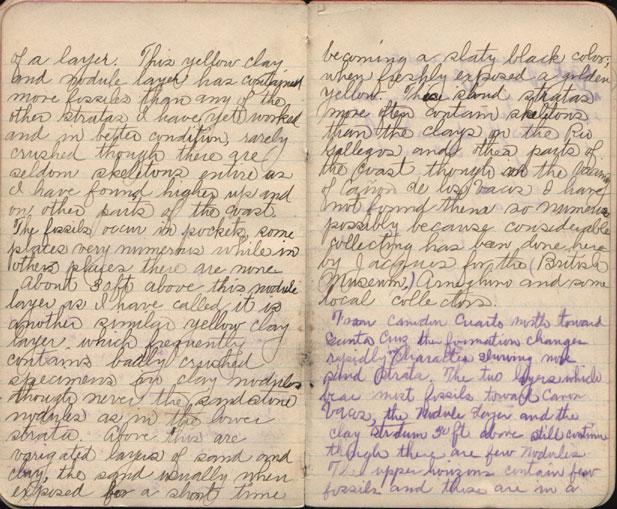 of a layer. This yellow clay
and nodule layer has contained
more fossils than any of the
other stratas I have yet worked
and in better condition, rarely
crushed though there are
seldom skeletons entire as
I have found higher up and
on other parts of the coast.
The fossils occur in pockets, some
places very numerous while in
others places there are none
About 30 ft above this nodule
layer as I have called it is
another similar yellow clay
layer which frequently
contains badly crushed
specimens in clay nodules
though never the sandstone
nodules as in the lower
strata. Above this are
varigated layers of sand and
clay, the sand usually when
exposed for a short time
becoming a slaty black color;
when freshly exposed a golden
yellow. These sand stratas
more often contain skeletons
than the clays on the Rio
Gallegos and other parts of
the coast though in the
of Canon de los Vacos I have
not found them so numerous
possibly because considerable
collecting has been done here
by Jacques for the (British
Museum,) Ameghino and some
local collectors.
From Camden Cuarto north toward
Santa Cruz the formation changes
rapidly Character showing more
sand strata. The two layers which
bear most fossils toward Canon
Vacas, the Nodule layer and the
clay stratum 30 ft above still continue
though there are few Nodules
The upper horizons contain few
fossils and these are in a